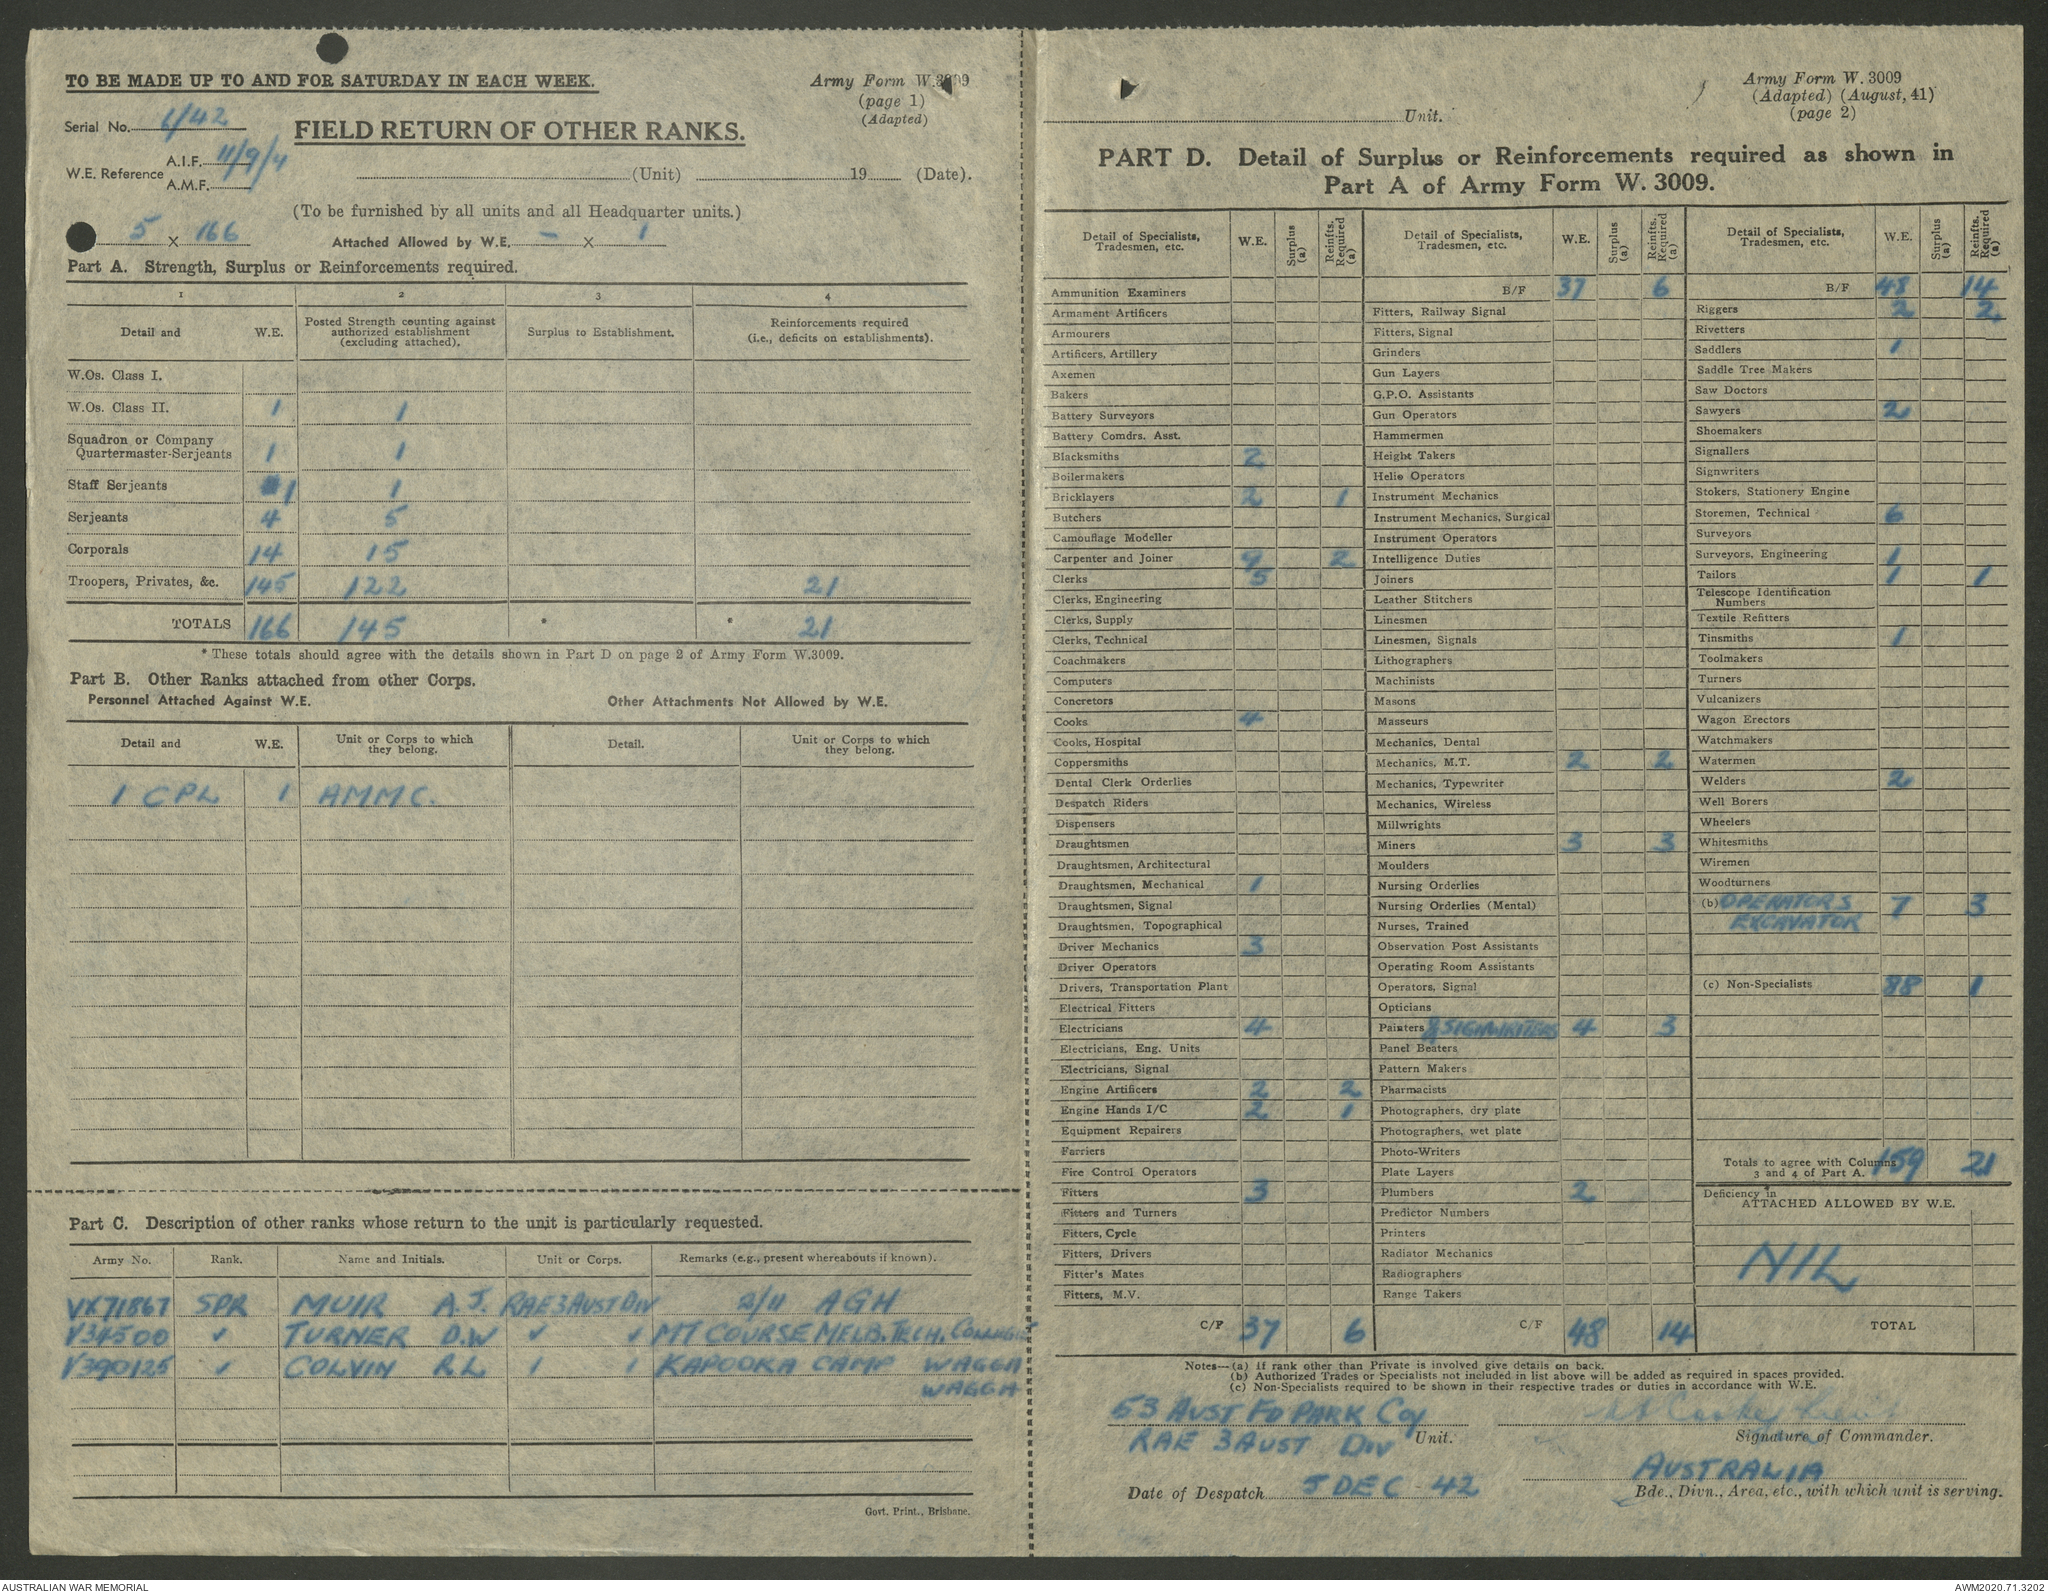 TO BE MADE UP TO AND FOR SATURDAY IN EACH WEEK.
Army Form W.3009
(page 1)
(Adapted)
Serial No. 6/42
FIELD RETURN OF OTHER RANKS.
W.E. Reference
A.I.F. 11/9/4
A.M.F.
(Unit) 19 (Date).
(To be furnished by all units and all Headquarter units.)
5 X 166
Attached Allowed by W.E. - X 1
Part A. Strength, Surplus or Reinforcements required.
1 2 3 4
Detail and W.E. Posted Strength counting against authorized establishment (excluding attached). Surplus to Establishment. Reinforcements required (i.e., deficits on establishments).
W.Os. Class I.
W.Os. Class II. 1 1
Squadron or Company
Quartermaster-Serjeants 1 1
Staff Serjeants 1 1
Serjeants 4 5
Corporals 14 15
Troopers, Privates, &c. 145 122 21
TOTALS 166 145 * * 21
* These totals should agree with the details shown in Part D on page 2 of Army Form W.3009.
Part B. Other Ranks attached from other Corps.
Personnel Attached Against W.E. Other Attachments Not Allowed by W.E.
Detail and W.E. Unit or Corps to which they belong. Detail. Unit or Corps to which they belong.
1 CPL 1 AMMC.
Part C. Description of other ranks whose return to the unit is particularly requested.
Army No. Rank. Name and Initials. Unit or Corps. Remarks (e.g., present whereabouts if known).
VX71867 SPR MUIR A.J. RAE 3 AUST DIV 2/11 AGH
V34500 ✓ TURNER D.W ✓ ✓ MT COURSE MELB. TECH. COLLEGE
V390125 ✓ COLVIN R L ✓ ✓ KAPOOKA CAMP WAGGA
WAGGA
Govt. Print., Brisbane.
Army Form W. 3009
(Adapted) (August, 41)
(page 2)
Unit.
PART D. Detail of Surplus or Reinforcements required as shown in
Part A of Army Form W. 3009.
Detail of Specialists, Tradesmen, etc. W.E. Surplus (a) Reinfts. Required (a)
Ammunition Examiners
Armament Artificers
Armourers
Artificers, Artillery
Axemen
Bakers
Battery Surveyors
Battery Comdrs. Asst.
Blacksmiths 2
Boilermakers
Bricklayers 2 1
Butchers
Camouflage Modeller
Carpenter and Joiner 9 2
Clerks 5
Clerks, Engineering
Clerks, Supply
Clerks, Technical
Coachmakers
Computers
Concretors
Cooks 4
Cooks, Hospital
Coppersmiths
Dental Clerk Orderlies
Despatch Riders
Dispensers
Draughtsmen
Draughtsmen, Architectural
Draughtsmen, Mechanical 1
Draughtsmen, Signal
Draughtsmen, Topographical
Driver Mechanics 3
Driver Operators
Drivers, Transportation Plant
Electrical Fitters
Electricians 4
Electricians, Eng. Units
Electricians, Signal
Engine Artificers 2 2
Engine Hands I/C 2 1
Equipment Repairers
Farriers
Fire Control Operators
Fitters 3
Fitters and Turners
Fitters, Cycle
Fitters, Drivers
Fitter's Mates
Fitters, M.V.
C/F 37 6
Detail of Specialists, Tradesmen, etc. W.E. Surplus (a) Reinfts. Required (a)
B/F 37 6
Fitters, Railway Signal
Fitters, Signal
Grinders
Gun Layers
G.P.O. Assistants
Gun Operators
Hammermen
Height Takers
Helio Operators
Instrument Mechanics
Instrument Mechanics, Surgical
Instrument Operators
Intelligence Duties
Joiners
Leather Stitchers
Linesmen
Linesmen, Signals
Lithographers
Machinists
Masons
Masseurs
Mechanics, Dental
Mechanics, M.T. 2 2
Mechanics, Typewriter
Mechanics, Wireless
Millwrights
Miners 3 3
Moulders
Nursing Orderlies
Nursing Orderlies (Mental)
Nurses, Trained
Observation Post Assistants
Operating Room Assistants
Operators, Signal
Opticians
Painters & SIGNWRITERS 4 3
Panel Beaters
Pattern Makers
Pharmacists
Photographers, dry plate
Photographers, wet plate
Photo-Writers
Plate Layers
Plumbers 2
Predictor Numbers
Printers
Radiator Mechanics
Radiographers
Range Takers
C/F 48 14
Detail of Specialists, Tradesmen, etc. W.E. Surplus (a) Reinfts. Required (a)
B/F 48 14
Riggers 2 2
Rivetters
Saddlers 1
Saddle Tree Makers
Saw Doctors
Sawyers 2
Shoemakers
Signallers
Signwriters
Stokers, Stationery Engine
Storemen, Technical 6
Surveyors
Surveyors, Engineering 1
Tailors 1 1
Telescope Identification
Numbers
Textile Refitters
Tinsmiths 1
Toolmakers
Turners
Vulcanizers
Wagon Erectors
Watchmakers
Watermen
Welders 2
Well Borers
Wheelers
Whitesmiths
Wiremen
Woodturners
(b) OPERATORS 7 3
EXCAVATOR
(c) Non-Specialists 88 1
Totals to agree with Columns
3 and 4 of Part A. 159 21
Deficiency in
ATTACHED ALLOWED BY W.E.
NIL
TOTAL
Notes—(a) If rank other than Private is involved give details on back.
(b) Authorized Trades or Specialists not included in list above will be added as required in spaces provided.
(c) Non-Specialists required to be shown in their respective trades or duties in accordance with W.E.
53 AUST FD PARK Coy
RAE 3 AUST DIV Unit.
Signature of Commander.
Date of Despatch 5 DEC 42
AUSTRALIA
Bde., Divn., Area, etc., with which unit is serving.
AUSTRALIAN WAR MEMORIAL
AWM2020.71.3202